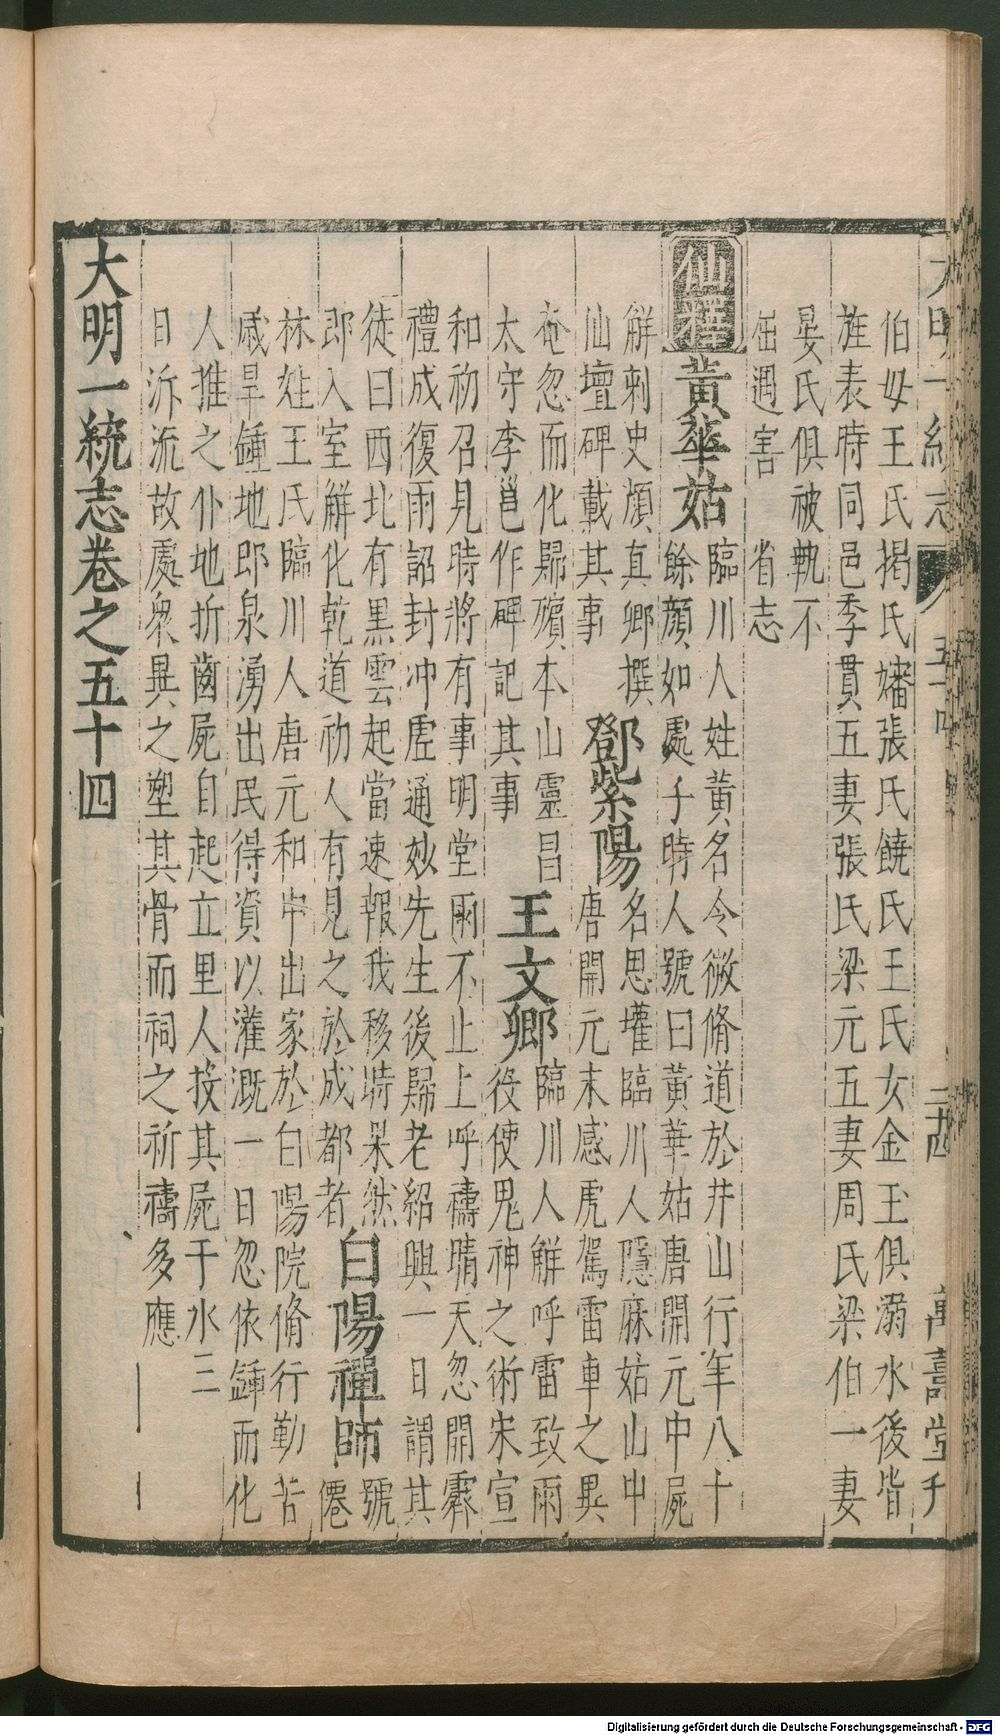 大明一統志 五十四 二十四 萬壽堂刊
伯母王氏揭氏嬸張氏饒氏王氏女金玉俱溺水後皆
旌表時同邑季貫五妻張氏梁元五妻周氏梁伯一妻
晏氏俱被執不
屈遇害 省志
仙釋 黃華姑 臨川人姓黃名令微脩道於井山行年八十
餘顏如處子時人號曰黃華姑唐開元中屍
解刺史顏真卿撰
仙壇碑載其事 鄧紫陽 名思瓘臨川人隱麻姑山中
唐開元末感虎駕雷車之異
奄忽而化歸殯本山靈昌
太守李邕作碑記其事 王文卿 臨川人解呼雷致雨
役使鬼神之術宋宣
和初召見時將有事明堂雨不止上呼禱晴天忽開霽
禮成復雨詔封冲虛通妙先生後歸老紹興一日謂其
徒曰西北有黑雲起當速報我移時杲然
即入室解化乾道初人有見之於成都者 白陽禪師 號
僊
林姓王氏臨川人唐元和中出家於白陽院脩行勤苦
歲旱鍾地即泉湧出民得資以灌溉一日忽依鍾而化
人推之仆地折齒屍自起立里人投其屍于水三
日泝流故處衆異之塑其骨而祠之祈禱多應
大明一統志卷之五十四
Digitalisierung gefördert durch die Deutsche Forschungsgemeinschaft - DFG